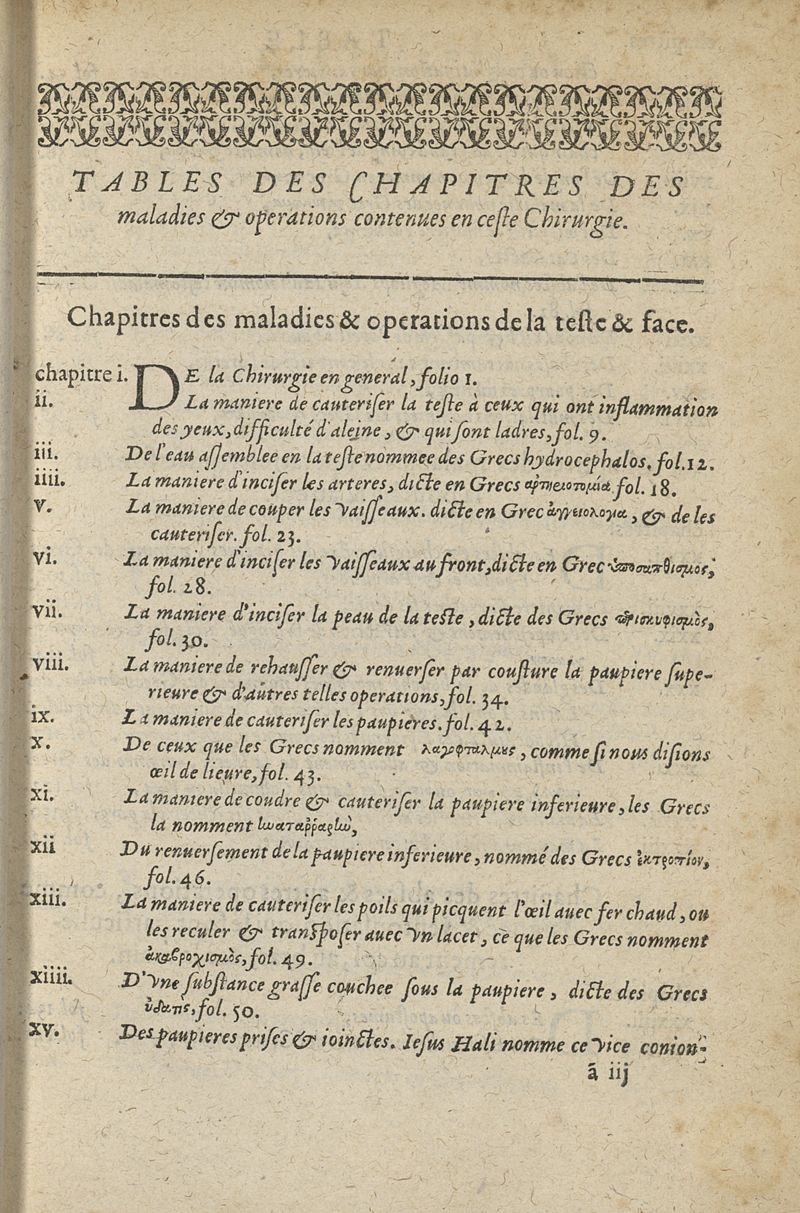 TABLES DES CHAPITRES DES
maladies & operations contenues en ceste Chirurgie.
Chapitres des maladies & operations de la teste & face.
chapitre i. DE la Chirurgie en general, folio 1.
ii. La maniere de cauteriser la teste à ceux qui ont inflammation
des yeux, difficulté d'aleine, & qui sont ladres, fol. 9.
iii. De l'eau assemblee en la teste nommee des Grecs hydrocephalos. fol. 12.
iiii. La maniere d'inciser les arteres, dicte en Grecs ἀρτηειοτομία fol. 18.
v. La maniere de couper les vaisseaux. dicte en Grec ἀγγειολογια, & de les
cauteriser. fol. 23.
vi. La maniere d'inciser les vaisseaux au front, dicte en Grec ὑποσπαθισμος,
fol. 28.
vii. La maniere d'inciser la peau de la teste, dicte des Grecs περισκυφισμὸς,
fol. 30.
viii. La maniere de rehausser & renuerser par cousture la paupiere supe-
rieure & d'autres telles operations, fol. 34.
ix. La maniere de cauteriser les paupieres. fol. 42.
x. De ceux que les Grecs nomment λαγοφταλμους, comme si nous disions
œil de lieure, fol. 43.
xi. La maniere de coudre & cauteriser la paupiere inferieure, les Grecs
la nomment
xii Du renuersement de la paupiere inferieure, nommé des Grecs ἐκτροπίον,
fol. 46.
xiii. La maniere de cauteriser les poils qui picquent l'œil auec fer chaud, ou
les reculer & transposer auec vn lacet, ce que les Grecs nomment
ἀναβροχισμὸς, fol. 49.
xiiii. D'vne substance grasse couchee sous la paupiere, dicte des Grecs
ὑδατις, fol. 50.
xv. Des paupieres prises & ioinctes. Iesus Hali nomme ce vice conion-
ā iij